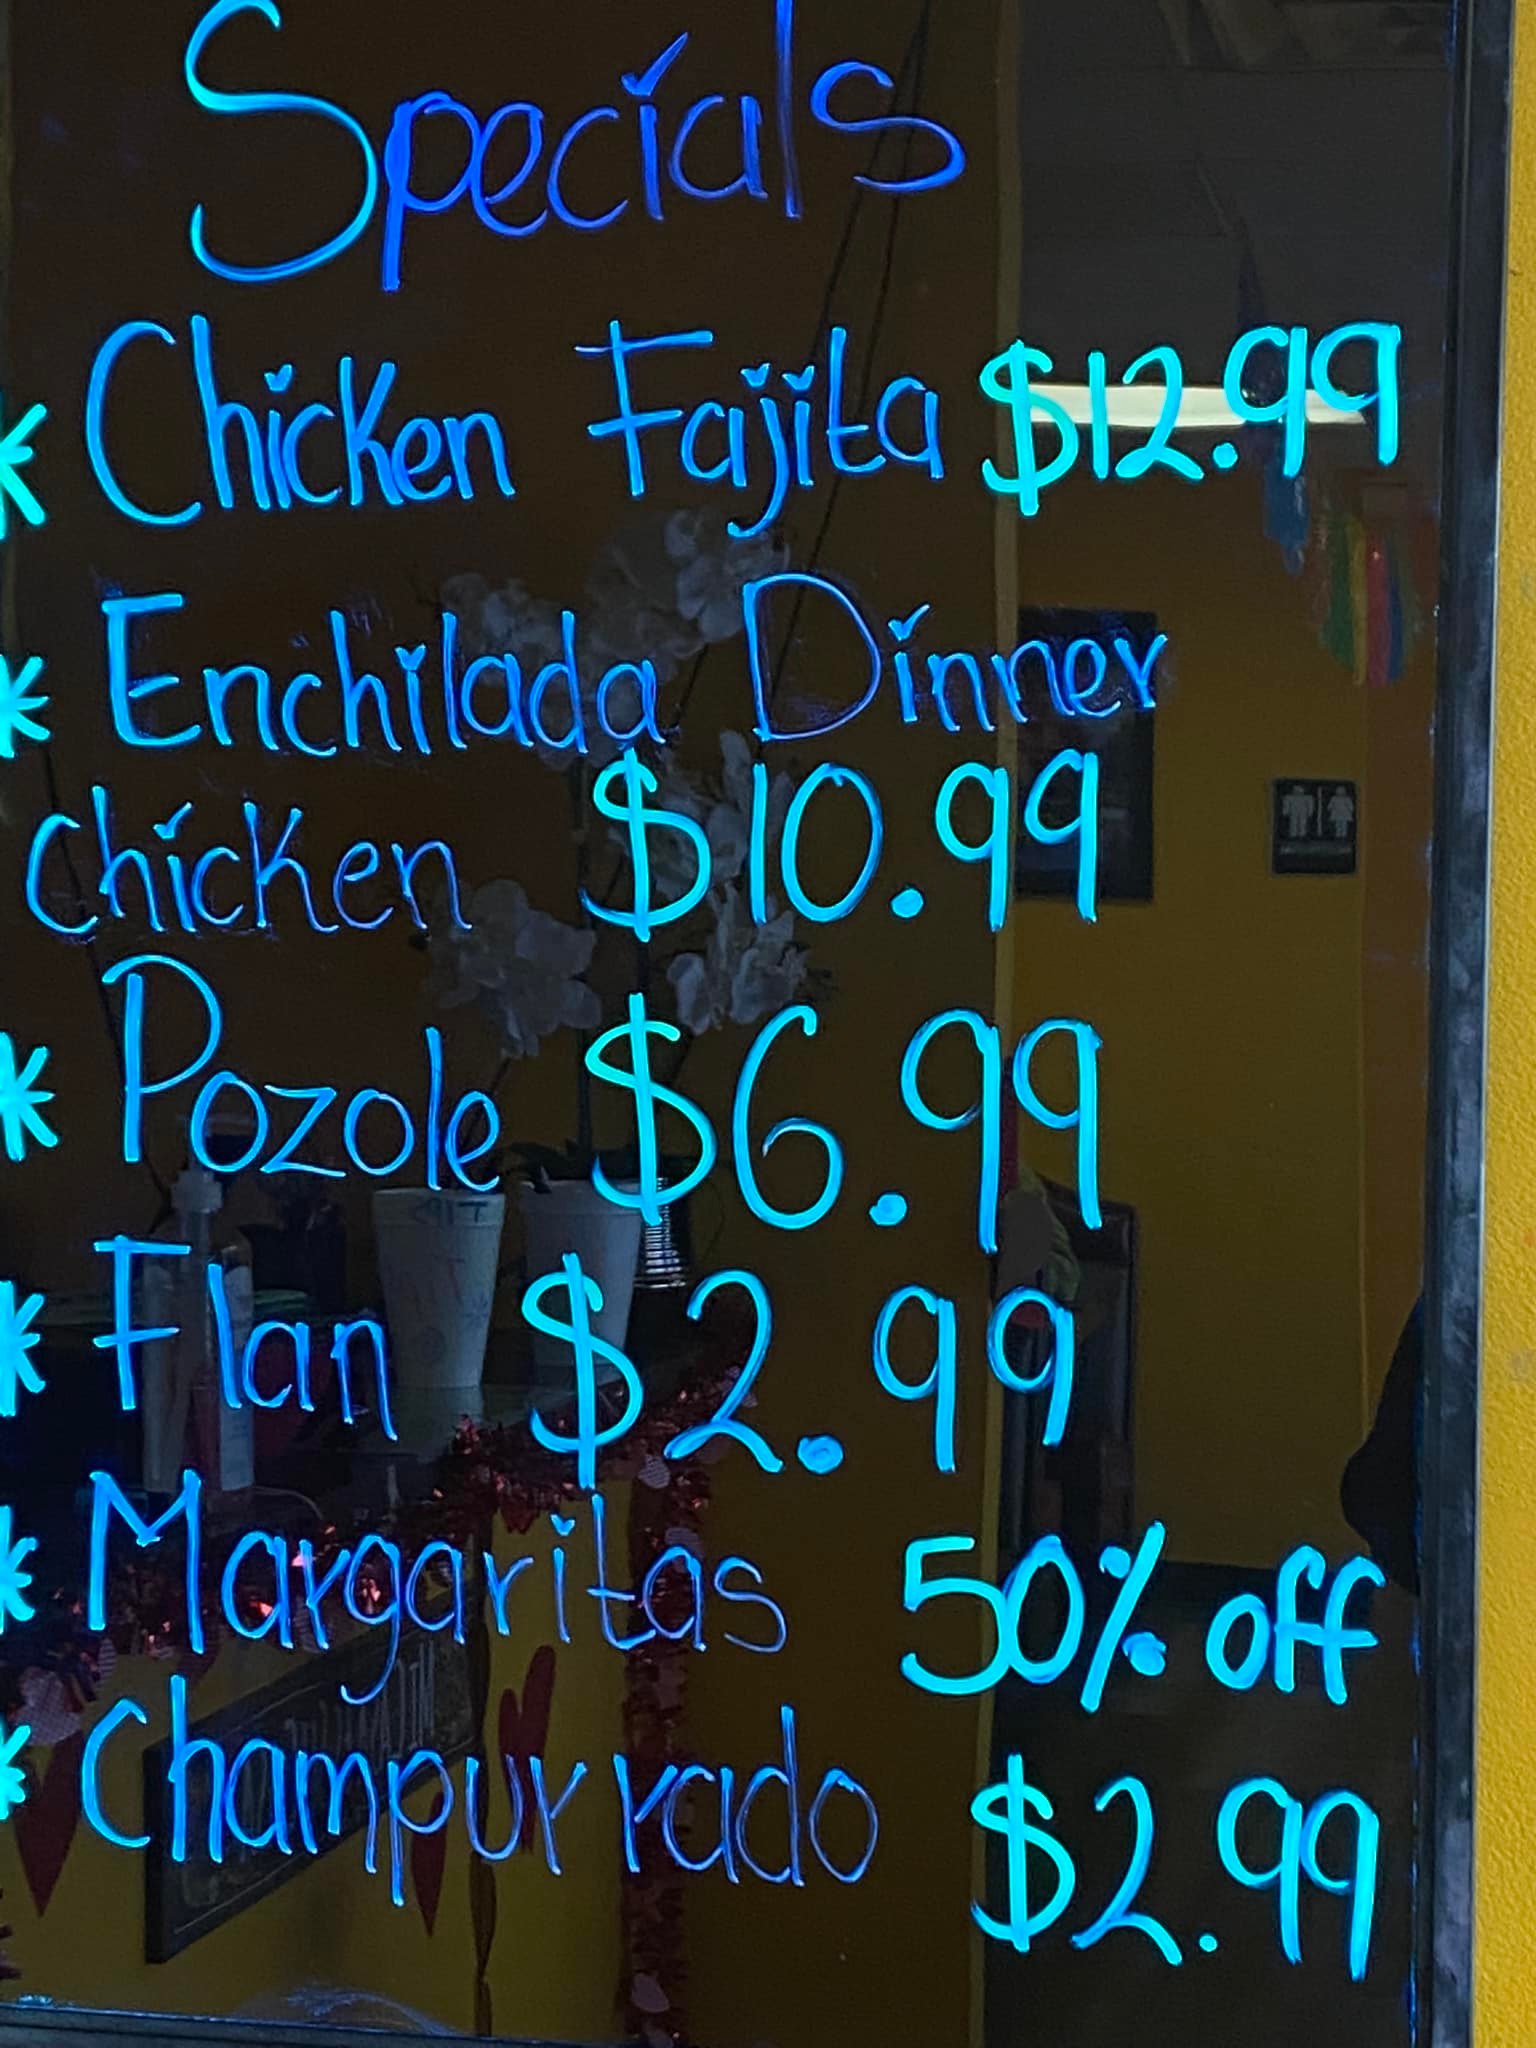 Specials
* Chicken Fajita $12.99
* Enchilada Dinner
chicken $10.99
* Pozole $6.99
* Flan $2.99
* Margaritas 50% off
* Champurrado $2.99